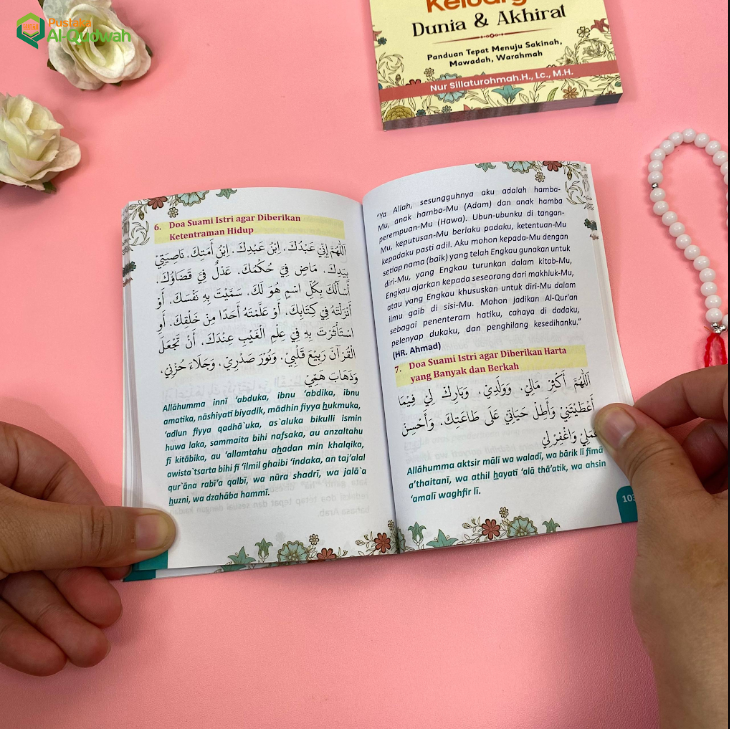 Pustaka
Al-Qudwah
Dunia & Akhirat
Panduan Tepat Menuju Sakinah,
Mawadah, Warahmah
Nur Sillaturohmah.H., Lc., M.H.
6. Doa Suami Istri agar Diberikan
Ketentraman Hidup
اَللّٰهُمَّ إِنِّيْ عَبْدُكَ. اِبْنُ عَبْدِكَ. اِبْنُ أَمَتِكَ. نَاصِيَتِيْ
بِيَدِكَ. مَاضٍ فِيَّ حُكْمُكَ. عَدْلٌ فِيَّ قَضَاؤُكَ.
أَسْأَلُكَ بِكُلِّ اسْمٍ هُوَ لَكَ. سَمَّيْتَ بِهِ نَفْسَكَ. أَوْ
أَنْزَلْتَهُ فِيْ كِتَابِكَ. أَوْ عَلَّمْتَهُ أَحَدًا مِنْ خَلْقِكَ. أَوِ
اسْتَأْثَرْتَ بِهِ فِيْ عِلْمِ الْغَيْبِ عِنْدَكَ. أَنْ تَجْعَلَ
الْقُرْآنَ رَبِيْعَ قَلْبِيْ. وَنُوْرَ صَدْرِيْ. وَجَلَاءَ حُزْنِيْ.
وَذَهَابَ هَمِّيْ
Allâhumma innî 'abduka, ibnu 'abdika, ibnu
amatika, nâshiyatî biyadik, mâdhin fiyya hukmuka,
'adlun fiyya qadhâ`uka, as`aluka bikulli ismin
huwa laka, sammaita bihi nafsaka, au anzaltahu
fî kitâbika, au 'allamtahu ahadan min khalqika,
awista`tsarta bihi fi 'ilmil ghaibi 'indaka, an taj'alal
qur`âna rabî'a qalbî, wa nûra shadrî, wa jalâ`a
huznî, wa dzahâba hammî.
"Ya Allah, sesungguhnya aku adalah hamba-
Mu, anak hamba-Mu (Adam) dan anak hamba
perempuan-Mu (Hawa). Ubun-ubunku di tangan-
Mu, keputusan-Mu berlaku padaku, ketentuan-Mu
kepadaku pasti adil. Aku mohon kepada-Mu dengan
setiap nama (baik) yang telah Engkau gunakan untuk
diri-Mu, yang Engkau turunkan dalam kitab-Mu,
Engkau ajarkan kepada seseorang dari makhluk-Mu,
atau yang Engkau khususkan untuk diri-Mu dalam
ilmu gaib di sisi-Mu. Mohon jadikan Al-Qur'an
sebagai penenteram hatiku, cahaya di dadaku,
pelenyap dukaku, dan penghilang kesedihanku."
(HR. Ahmad)
7. Doa Suami Istri agar Diberikan Harta
yang Banyak dan Berkah
اَللّٰهُمَّ أَكْثِرْ مَالِيْ. وَوَلَدِيْ. وَبَارِكْ لِيْ فِيْمَا
أَعْطَيْتَنِيْ وَأَطِلْ حَيَاتِيْ عَلَى طَاعَتِكَ. وَأَحْسِنْ
عَمَلِيْ وَاغْفِرْ لِيْ
Allâhumma aktsir mâlî wa waladî, wa bârik lî fîmâ
a'thaitanî, wa athil hayatî 'alâ thâ'atik, wa ahsin
'amalî waghfir lî.